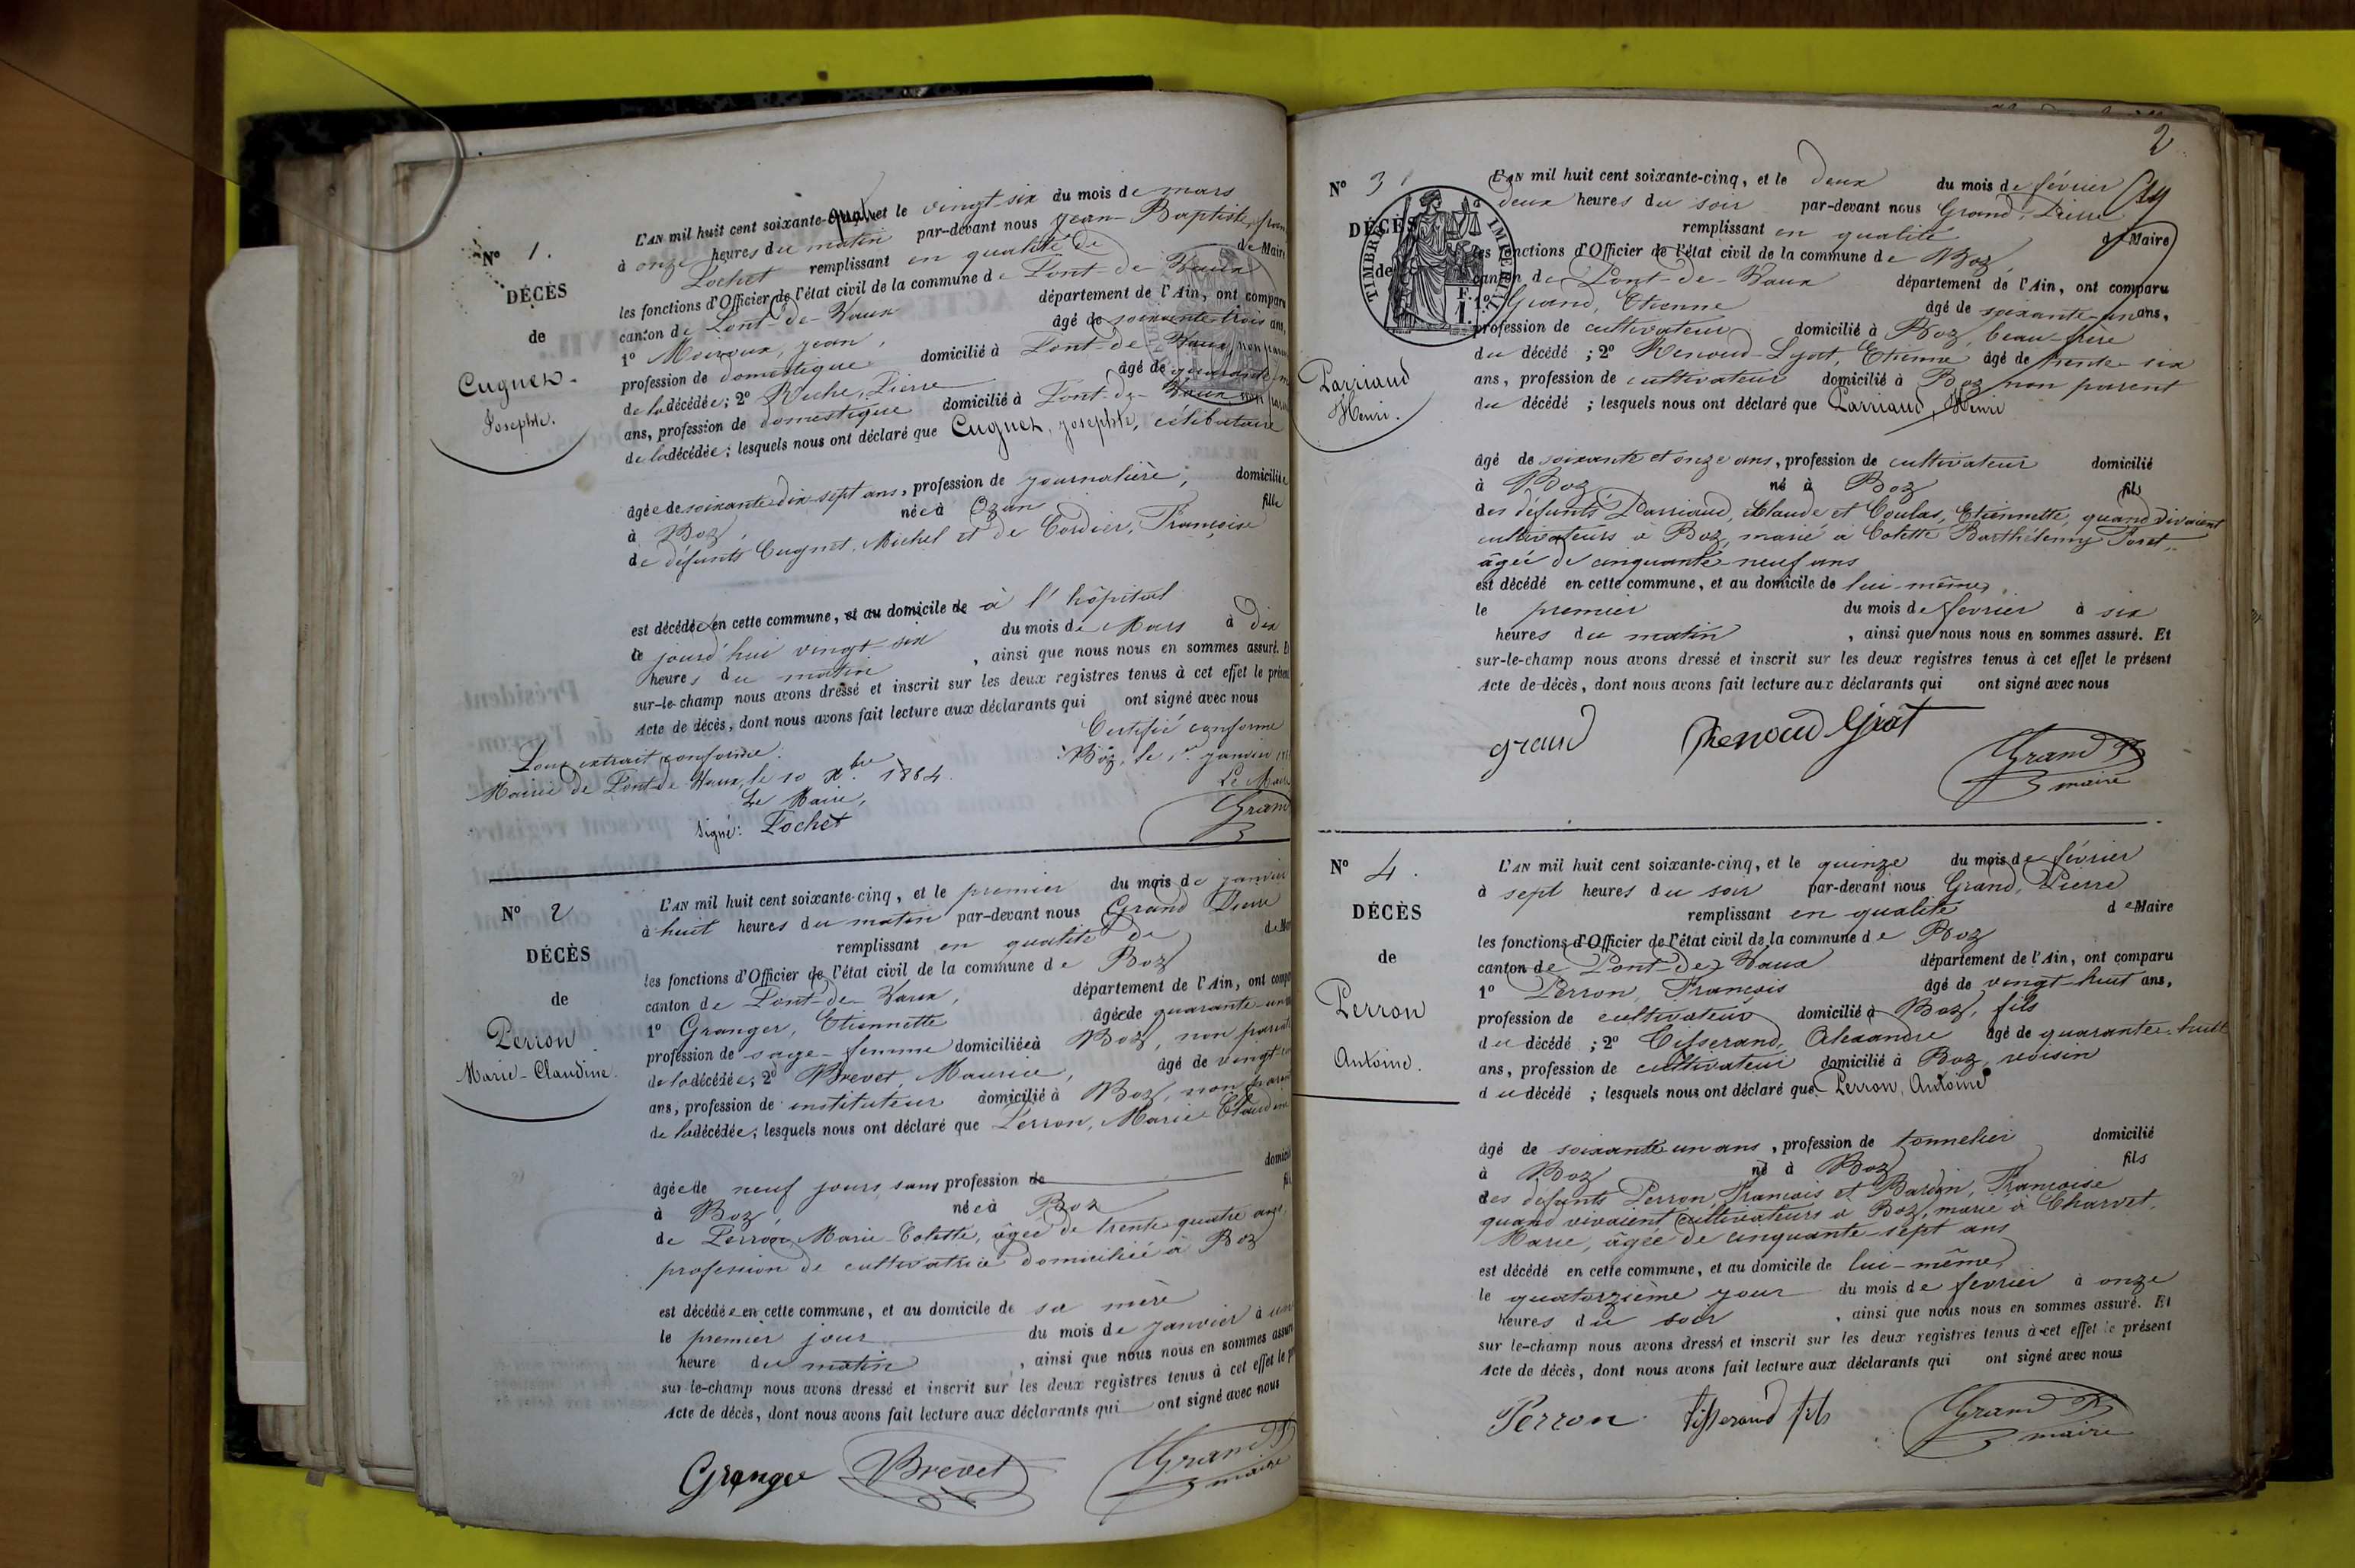 N° 1.
DÉCÈS
de
Cugnet
Josephte.
L'AN mil huit cent soixante-quatre et le vingt-six du mois de mars
à onze heures du matin par-devant nous Jean-Baptiste
Pochet remplissant en qualité de de Maire
les fonctions d'Officier de l'état civil de la commune de Pont-de-Vaux
canton de Pont-de-Vaux département de l'Ain, ont comparu
1° Moiroux, Jean, âgé de soixante-trois ans,
profession de domestique domicilié à Pont-de-Vaux, non parent
de la décédée; 2° Ruche, Pierre âgé de quarante
ans, profession de domestique domicilié à Pont-de-Vaux non parent
de la décédée; lesquels nous ont déclaré que Cugnet, Josephte, célibataire
âgée de soixante dix-sept ans, profession de journalière, domiciliée
à Boz, née à Ozan fille
de défunts Cugnet, Michel et de Cordier, Françoise
est décédée en cette commune, et au domicile de à l'hôpital
le jourd'hui vingt-six du mois de Mars à dix
heures du matin, ainsi que nous nous en sommes assuré. Et
sur-le-champ nous avons dressé et inscrit sur les deux registres tenus à cet effet le présent
Acte de décès, dont nous avons fait lecture aux déclarants qui ont signé avec nous
Pour extrait conforme. Certifié conforme
Mairie de Pont-de-Vaux, le 10 Xbre 1864. Boz, le 1er janvier
Le Maire, Le Maire
Signé: Pochet Grand
N° 2
DÉCÈS
de
Perron
Marie-Claudine.
L'AN mil huit cent soixante-cinq, et le premier du mois de janvier
à huit heures du matin par-devant nous Grand Pierre
remplissant en qualité de de Maire
les fonctions d'Officier de l'état civil de la commune de Boz
canton de Pont-de-Vaux, département de l'Ain, ont comparu
1° Granger, Etiennette âgée de quarante-un
profession de sage-femme domiciliée à Boz, non parent
de la décédée; 2° Brevet, Maurice, âgé de vingt
ans, profession de instituteur domicilié à Boz, non parent
de la décédée; lesquels nous ont déclaré que Perron, Marie-Claudine
âgée de neuf jours sans profession de domiciliée
à Boz, née à Boz
de Perron, Marie-Colette, âgée de trente-quatre ans,
profession de cultivatrice domiciliée à Boz
est décédée en cette commune, et au domicile de sa mère
le premier jour du mois de janvier à une
heure du matin, ainsi que nous nous en sommes assuré
sur-le-champ nous avons dressé et inscrit sur les deux registres tenus à cet effet le
Acte de décès, dont nous avons fait lecture aux déclarants qui ont signé avec nous
Granger Brevet Grand P.
maire
2
N° 3
DÉCÈS
de
TIMBRE IMPÉRIAL
Parriaud
Henri.
L'AN mil huit cent soixante-cinq, et le deux du mois de février
à deux heures du soir par-devant nous Grand, Pierre
remplissant en qualité de Maire
les fonctions d'Officier de l'état civil de la commune de Boz
canton de Pont-de-Vaux département de l'Ain, ont comparu
1° Grand, Etienne âgé de soixante-un ans,
profession de cultivateur domicilié à Boz, beau-frère
du décédé; 2° Renoud-Lyat, Etienne âgé de trente-six
ans, profession de cultivateur domicilié à Boz non parent
du décédé; lesquels nous ont déclaré que Parriaud, Henri
âgé de soixante et onze ans, profession de cultivateur domicilié
à Boz né à Boz fils
des défunts Parriaud, Claude et Coulas, Etiennette, quand vivaient
cultivateurs à Boz, marié à Colette Barthélemy Poret
âgée de cinquante-neuf ans
est décédé en cette commune, et au domicile de lui-même,
le premier du mois de février à six
heures du matin, ainsi que nous nous en sommes assuré. Et
sur-le-champ nous avons dressé et inscrit sur les deux registres tenus à cet effet le présent
Acte de décès, dont nous avons fait lecture aux déclarants qui ont signé avec nous
grand Renoud Grat Grand P.
maire
N° 4.
DÉCÈS
de
Perron
Antoine.
L'AN mil huit cent soixante-cinq, et le quinze du mois de février
à sept heures du soir par-devant nous Grand, Pierre
remplissant en qualité de Maire
les fonctions d'Officier de l'état civil de la commune de Boz
canton de Pont-de-Vaux département de l'Ain, ont comparu
1° Perron, François âgé de vingt-huit ans,
profession de cultivateur domicilié à Boz, fils
du décédé; 2° Tisserand, Alexandre âgé de quarante-huit
ans, profession de cultivateur domicilié à Boz, voisin
du décédé; lesquels nous ont déclaré que Perron, Antoine
âgé de soixante un ans, profession de tonnelier domicilié
à Boz né à Boz fils
des défunts Perron François et Bardin, Françoise
quand vivaient cultivateurs à Boz, marié à Charvet,
Marie, âgée de cinquante-sept ans
est décédé en cette commune, et au domicile de lui-même,
le quatorzième jour du mois de février à onze
heures du soir, ainsi que nous nous en sommes assuré. Et
sur le-champ nous avons dressé et inscrit sur les deux registres tenus à cet effet le présent
Acte de décès, dont nous avons fait lecture aux déclarants qui ont signé avec nous
Perron Tisserand fils Grand P.
maire